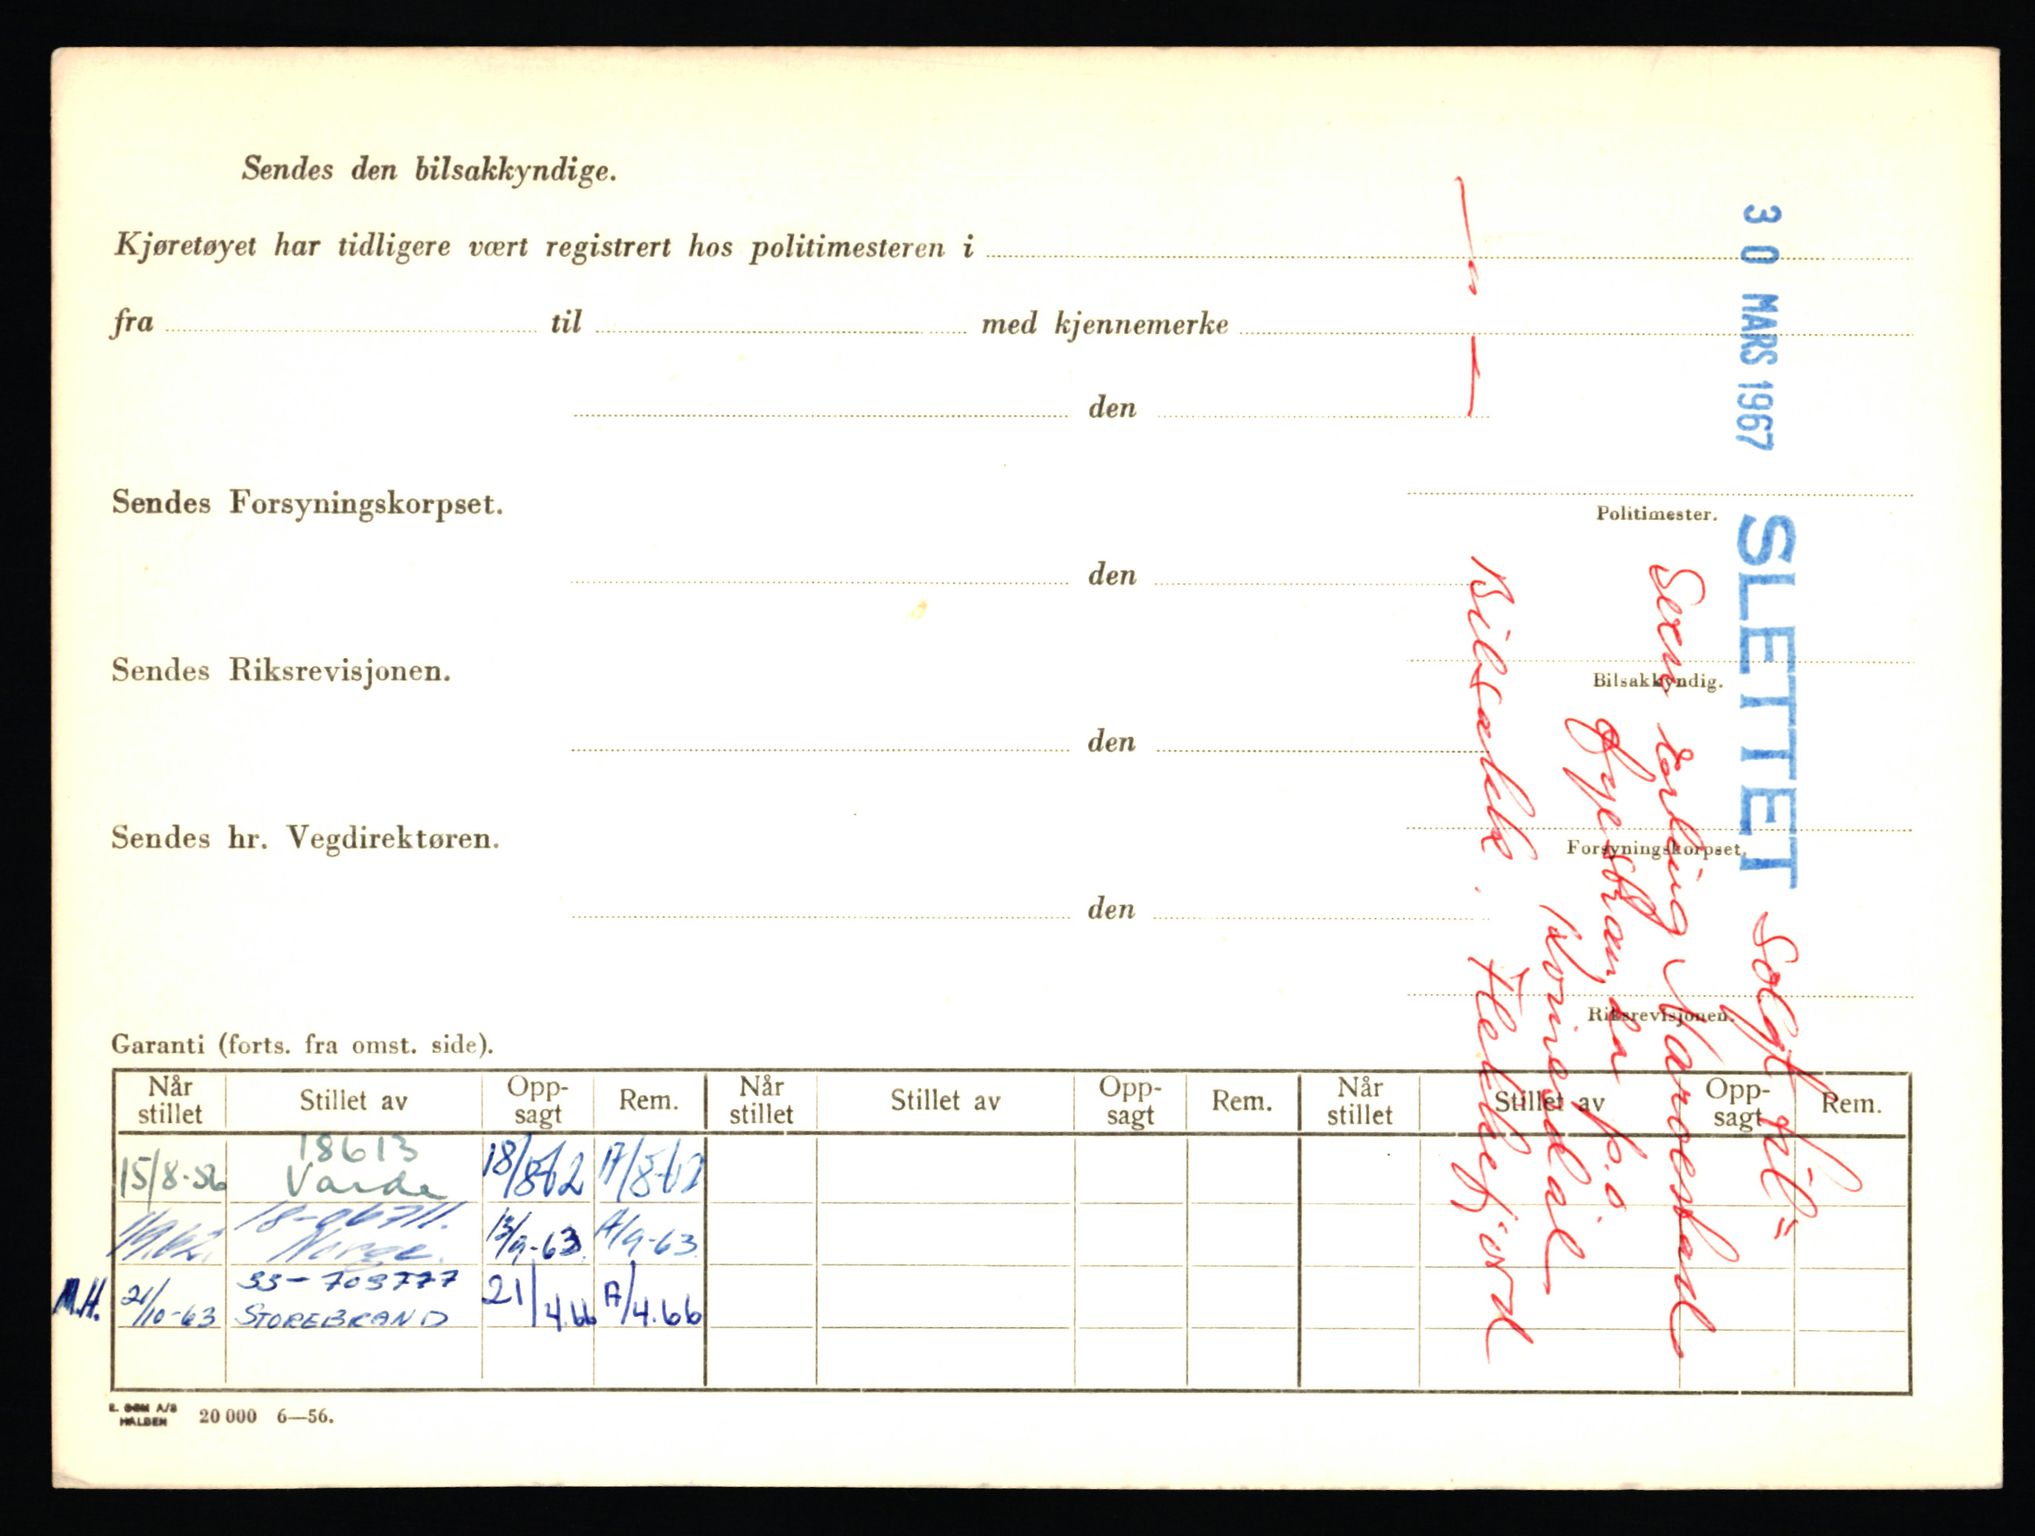 Sendes den bilsakkyndige.
Kjøretøyet har tidligere vært registrert hos politimesteren i
fra til med kjennemerke
den
Sendes Forsyningskorpset.
Politimester.
den
Sendes Riksrevisjonen.
Bilsakkyndig.
den
Sendes hr. Vegdirektøren.
Forsyningskorpset.
den
Riksrevisjonen.
Garanti (forts. fra omst. side).
Når stillet Stillet av Opp-sagt Rem. Når stillet Stillet av Opp-sagt Rem. Når stillet Stillet av Opp-sagt Rem.
18613
15/8-56 Varde 18/8-62 A/8-62
1/9.62. Norge. 13/9-63. A/9-63
33-703777
M.H. 21/10-63 STOREBRAND 21/4.66 A/4.66
E. SEM A/S
HALDEN
20 000 6—56.
30 MARS 1967 SLETTET
Solgt til =
p.o.
Kvinesdal
Bilsakk.